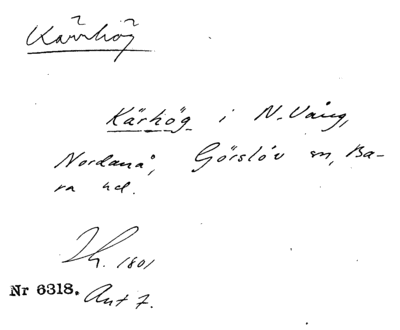 Kärrhög
Kärhög i N. Vång,
Nordanå, Görslöv sn, Ba-
ra hd.
Lh. 1801
Nr 6318. Akt 7.